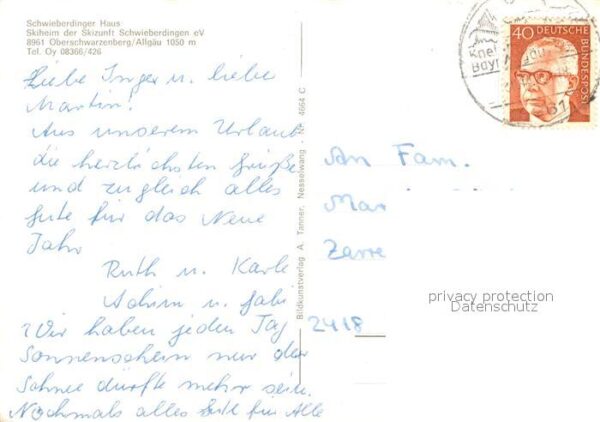 Schwieberdinger Haus
Skiheim der Skizunft Schwieberdingen eV
8961 Oberschwarzenberg/Allgäu 1050 m
Tel. Oy 08366/426
Liebe Inge u. liebe
Martin!
Aus unserem Urlaub
die herzlichsten Grüße
und zugleich alles
Gute für das Neue
Jahr
Ruth u. Karle
Achim u. Gabi
Wir haben jeden Tag
Sonnenschein nur der
Schnee dürfte mehr sein.
Nochmals alles Gute für Alle
Bildkunstverlag A. Tanner, Nesselwang - Nr. 4664 C
40
DEUTSCHE
BUNDESPOST
An Fam.
Mar
Zarre
2418
privacy protection
Datenschutz